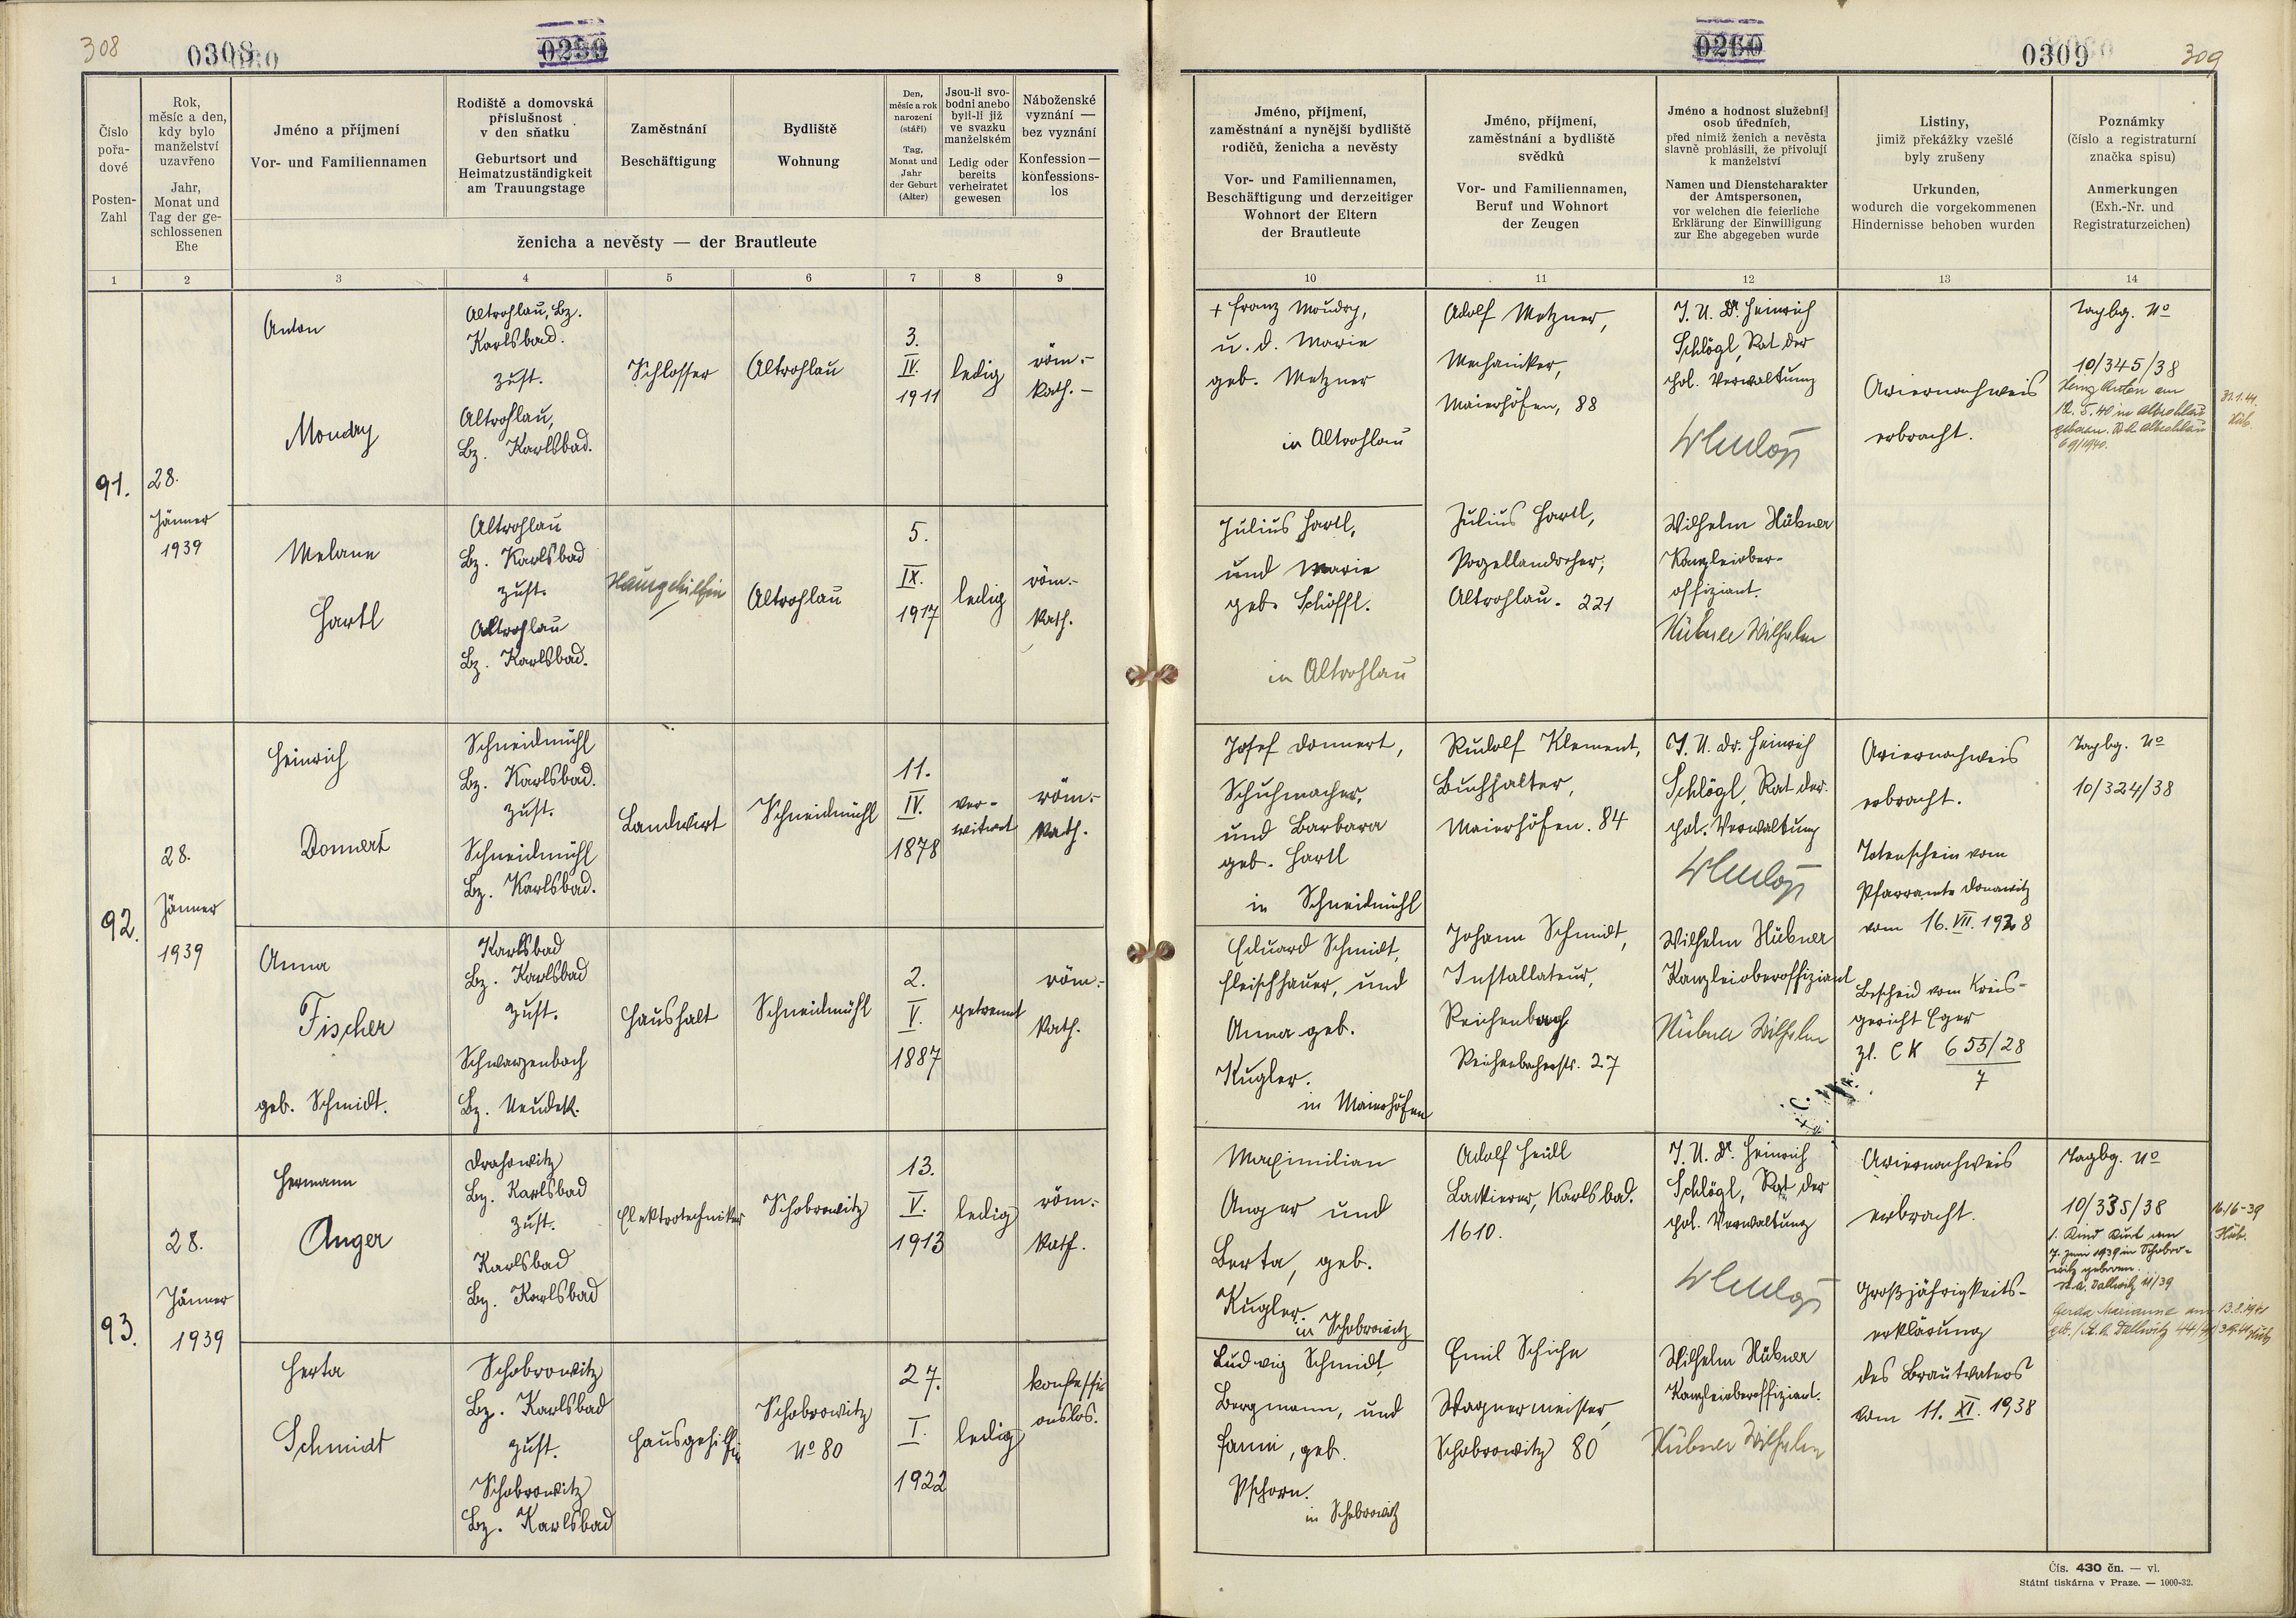 308
0308
0250
Číslo
pořa-
dové
Posten-
Zahl
Rok,
měsíc a den,
kdy bylo
manželství
uzavřeno
Jahr,
Monat und
Tag der ge-
schlossenen
Ehe
Jméno a příjmení
Vor- und Familiennamen
Rodiště a domovská
příslušnost
v den sňatku
Geburtsort und
Heimatzuständigkeit
am Trauungstage
Zaměstnání
Beschäftigung
Bydliště
Wohnung
Den,
měsíc a rok
narození
(stáří)
Tag,
Monat und
Jahr
der Geburt
(Alter)
Jsou-li svo-
bodni anebo
byli-li již
ve svazku
manželském
Ledig oder
bereits
verheiratet
gewesen
Náboženské
vyznání —
bez vyznání
Konfession —
konfessions-
los
ženicha a nevěsty — der Brautleute
1 2 3 4 5 6 7 8 9
91.
28.
Jänner
1939
Anton
Moudry
Altrohlau, Bz.
Karlsbad.
zust.
Altrohlau,
Bz. Karlsbad.
Schlosser
Altrohlau
3.
IV.
1911
ledig
röm.-
kath.-
Melane
Hartl
Altrohlau
Bz. Karlsbad
zust.
Altrohlau
Bz. Karlsbad.
Hausgehilfin
Altrohlau
5.
IX.
1917
ledig
röm.-
kath.
92.
28.
Jänner
1939
Heinrich
Donnert
Schneidmühl
Bz. Karlsbad.
zust.
Schneidmühl
Bz. Karlsbad.
Landwirt
Schneidmühl
11.
IV.
1878
ver-
witwet
röm.-
kath.
Anna
Fischer
geb. Schmidt.
Karlsbad
Bz. Karlsbad
zust.
Schwarzenbach
Bz. Neudek.
Haushalt
Schneidmühl
2.
V.
1887
getrennt
röm.-
kath.
93.
28.
Jänner
1939
Hermann
Anger
Drahowitz
Bz. Karlsbad
zust.
Karlsbad
Bz. Karlsbad
Elektrotechniker
Schobrowitz
13.
V.
1913
ledig
röm.-
kath.
Herta
Schmidt
Schobrowitz
Bz. Karlsbad
zust.
Schobrowitz
Bz. Karlsbad
Hausgehilfin
Schobrowitz
No 80
27.
I.
1922
ledig
konfessi-
onslos.
0260
0309
309
Jméno, příjmení,
zaměstnání a nynější bydliště
rodičů, ženicha a nevěsty
Vor- und Familiennamen,
Beschäftigung und derzeitiger
Wohnort der Eltern
der Brautleute
Jméno, příjmení,
zaměstnání a bydliště
svědků
Vor- und Familiennamen,
Beruf und Wohnort
der Zeugen
Jméno a hodnost služební
osob úředních,
před nimiž ženich a nevěsta
slavně prohlásili, že přivolují
k manželství
Namen und Dienstcharakter
der Amtspersonen,
vor welchen die feierliche
Erklärung der Einwilligung
zur Ehe abgegeben wurde
Listiny,
jimiž překážky vzešlé
byly zrušeny
Urkunden,
wodurch die vorgekommenen
Hindernisse behoben wurden
Poznámky
(číslo a registraturní
značka spisu)
Anmerkungen
(Exh.-Nr. und
Registraturzeichen)
10 11 12 13 14
+ Franz Moudry,
u. d. Marie
geb. Metzner
in Altrohlau
Adolf Metzner,
Mechaniker,
Maierhöfen, 88
J. U. Dr. Heinrich
Schlögl, Rat der
pol. Verwaltung
Ariernachweis
erbracht.
Tagbg. No
10/345/38
Heinz Anton am
12. 5. 40 in Altrohlau
geboren. St. A. Altrohlau
69/1940.
31.1.41.
Hüb.
Julius Hartl,
und Marie
geb. Schöffl.
in Altrohlau
Julius Hartl,
Porzellandreher,
Altrohlau. 221
Wilhelm Hübner
Kanzleiober-
offiziant.
Hübner Wilhelm
Josef Donnert,
Schuhmacher,
und Barbara
geb. Hartl
in Schneidmühl
Rudolf Klement,
Buchhalter,
Maierhöfen. 84
J. U. Dr. Heinrich
Schlögl, Rat der
pol. Verwaltung
Ariernachweis
erbracht.
Totenschein vom
Pfarramte Donawitz
vom 16. VII. 1928
Tagbg. No
10/324/38
Eduard Schmidt,
Fleischhauer, und
Anna geb.
Kugler.
in Maierhöfen
Johann Schmidt,
Installateur,
Reichenbach
Reichenbacherstr. 27
Wilhelm Hübner
Kanzleioberoffiziant
Hübner Wilhelm
Bescheid vom Kreis-
gericht Eger
zl. CK 655/28
7
Maximilian
Anger und
Berta, geb.
Kugler.
in Schobrowitz
Adolf Heidl
Lackierer, Karlsbad.
1610.
J. U. Dr. Heinrich
Schlögl, Rat der
pol. Verwaltung
Ariernachweis
erbracht.
Großjährigkeits-
erklärung
des Brautvaters
vom 11. XI. 1938
Tagbg. No
10/335/38
1. Kind Kurt am
7. Juni 1939 in Schobro-
witz geboren.
St. A. Dallwitz 11/39
16/6-39
Hüb.
Gerda Marianne am 13.8.1941
geb. / St. A. Dallwitz 44/41
Ludwig Schmidt,
Bergmann, und
Fanni, geb.
Pschorn.
in Schobrowitz
Emil Schiche
Wagnermeister,
Schobrowitz 80
Wilhelm Hübner
Kanzleioberoffiziant.
Hübner Wilhelm
Čís. 430 čn. — vl.
Státní tiskárna v Praze. — 1000-32.